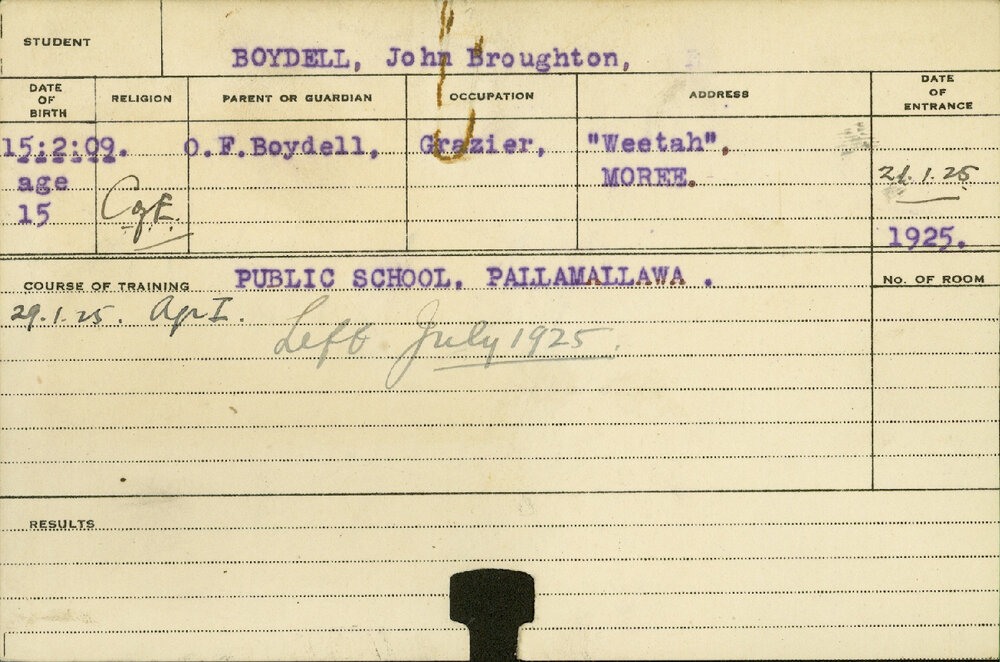 STUDENT
BOYDELL, John Broughton,
DATE OF BIRTH
RELIGION
PARENT OR GUARDIAN
OCCUPATION
ADDRESS
DATE OF ENTRANCE
15:2:09.
O.F.Boydell,
Grazier,
"Weetah",
age
MOREE.
21.1.25
15
C of E.
1925.
COURSE OF TRAINING
PUBLIC SCHOOL, PALLAMALLAWA .
No. OF ROOM
29.1.25. Agr I.
Left July 1925.
RESULTS